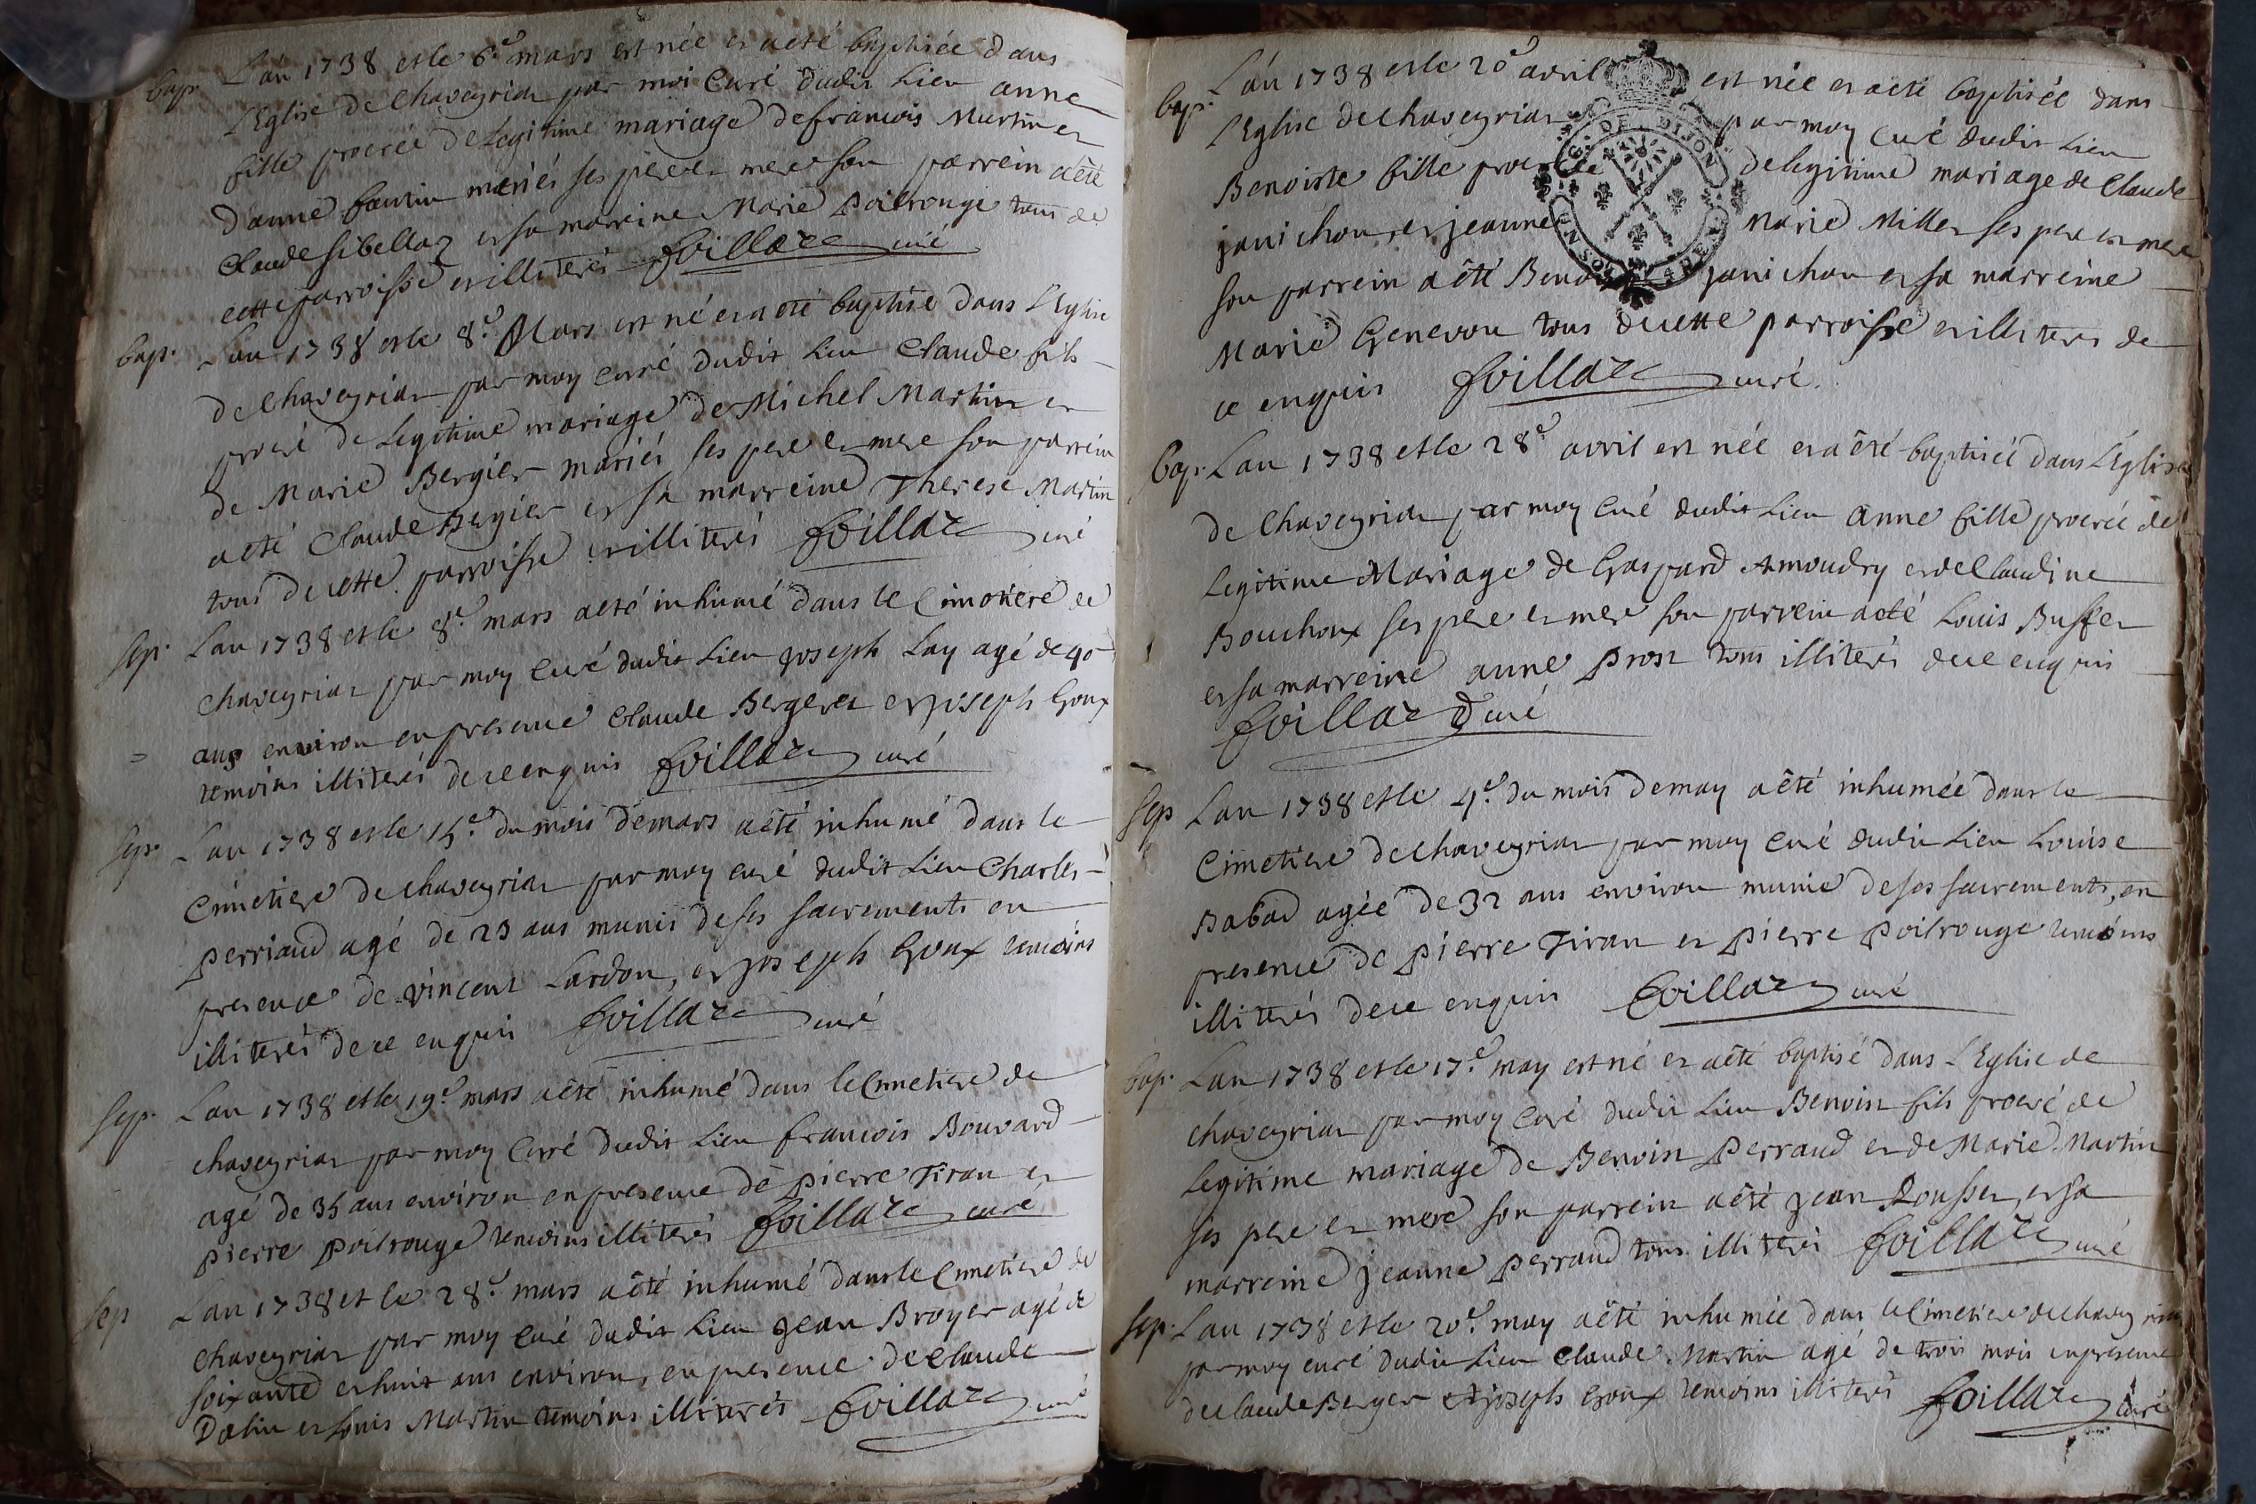 bap. L'an 1738 et le 6e mars est née et a eté baptisée dans
l'Eglise de Chaveyriat par moi Curé dudit Lieu anne
fille procréé de Legitime mariage de francois Martin et
d'anne fantin mariés ses pere et mere son parrein a eté
Claude sibellaz et sa marreine Marie Poilrouge tous de
cette parroisse et illiterés foillaz curé
bap. L'an 1738 et le 8e Mars est né et a eté baptisé dans l'Eglise
de Chaveyriat par moy curé dudit Lieu Claude fils
procréé de Legitime mariage de Michel Martin et
de Marie Bergier mariés ses pere et mere son parrein
a eté Claude Bergier et sa marreine Therese Martin
tous de cette parroisse et illiterés foillaz curé
sep. L'an 1738 et le 8e mars a eté inhumé dans le Cimetiere de
Chaveyriat par moy curé dudit Lieu joseph Lay agé de 40
ans environ en presence Claude Bergeret et joseph Goux
temoins illiterés de ce enquis foillaz curé
sep. L'an 1738 et le 15e du mois de mars a eté inhumé dans le
Cimetiere de chaveyriat par moy curé dudit Lieu Charles
perriaud agé de 23 ans munis de ses sacrements en
presence de vincent Lardon, et joseph Goux temoins
illiterés de ce enquis foillaz curé
sep. L'an 1738 et le 19e mars a eté inhumé dans le Cimetiere de
chaveyriat par moy Curé dudit Lieu francois Bouvard
agé de 35 ans environ en presence de pierre Tiran et
pierre poilrouge temoins illiterés foillaz curé
sep L'an 1738 et le 28e mars a eté inhumé dans le Cimetiere de
chaveyriat par moy Curé dudit Lieu jean Broyer agé de
soixante et huit ans environ, en presence de Claude
Dalin et Louis Martin temoins illiterés foillaz curé
bap. L'an 1738 et le 20e avril est née et a eté baptisée dans
l'Eglise de chaveyriat par moy curé dudit Lieu
DE DIJON
Benoiste fille procréé de legitime mariage de Claude
janichon, et jeanne Marie Millet ses pere et mere
son parrein a été Benoit janichon et sa marreine
Marie Genevou tous de cette parroisse et illiterés de
ce enquis foillaz curé.
bap. L'an 1738 et le 28e avril est née et a été baptisée dans l'Eglise
de Chaveyriat par moy curé dudit Lieu anne fille procréé de
Legitime Mariage de Gaspard Amoudry et de Claudine
Bouchoux ses pere et mere son parrein a eté Louis Buffet
et sa marreine anne Prost tous illiterés de ce enquis
foillaz curé
sep L'an 1738 et le 4e du mois de may a été inhumée dans le
Cimetiere de chaveyriat par moy Curé dudit Lieu Louise
Babad agée de 32 ans environ munie de ses sacrements, en
presence de pierre Tiran et pierre poilrouge temoins
illiterés de ce enquis foillaz curé
bap. L'an 1738 et le 17e may est né et a été baptisé dans l'Eglise de
chaveyriat par moy curé dudit Lieu Benoin fils procréé de
Legitime mariage de Benoin Perraud et de Marie Martin
ses pere et mere son parrein a été jean Rousset, et sa
marreine jeanne perraud tous illiterés foillaz curé
sep. L'an 1738 et le 20e may a été inhumée dans le Cimetiere de chaveyriat
par moy curé dudit Lieu Claude Martin agé de trois mois en presence
de claude Berger et joseph Goux temoins illiterés foillaz curé